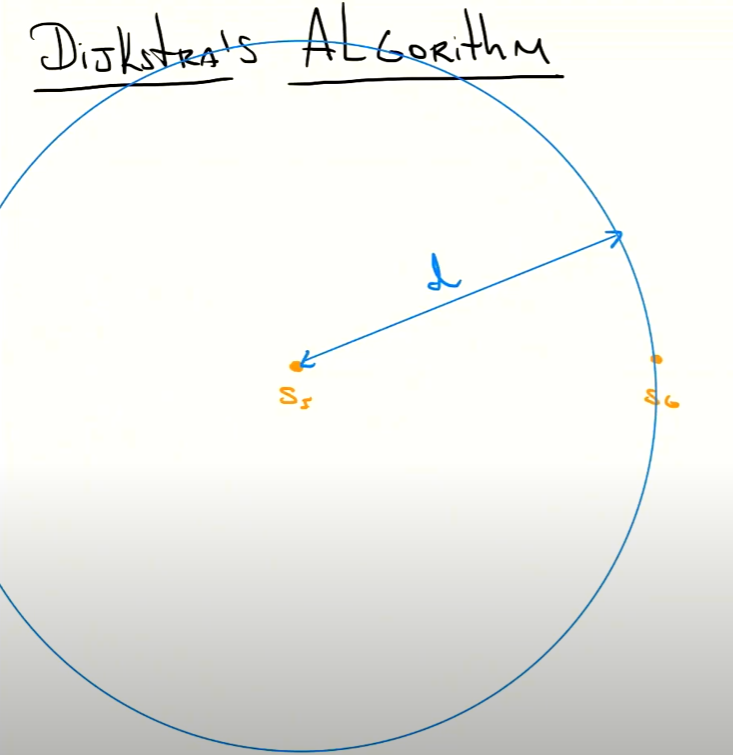 DIJKSTRA'S ALGORITHM
d
S₅
S₆